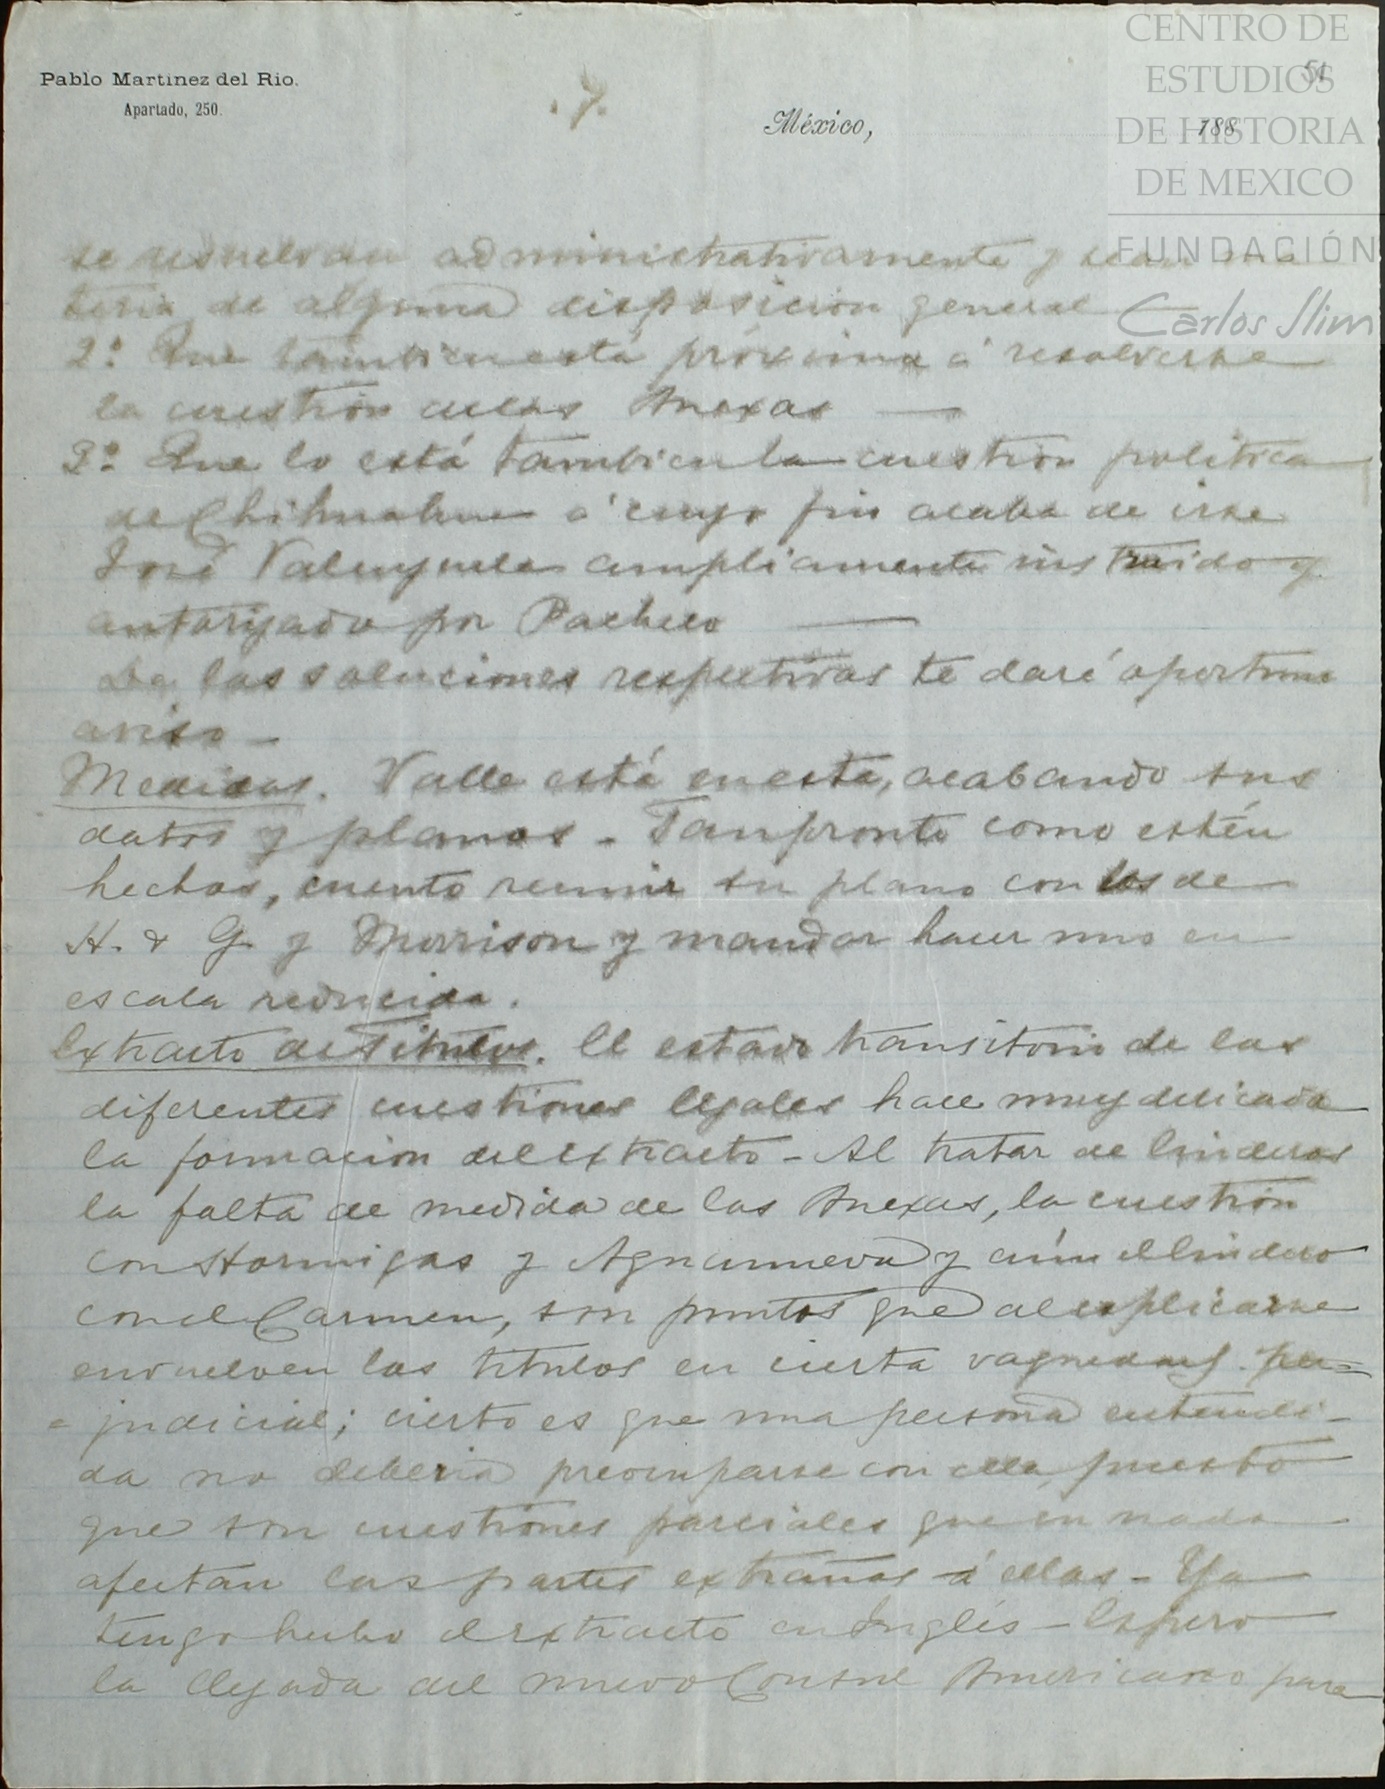 Pablo Martinez del Rio.
Apartado, 250.
.7.
México,
188
51
CENTRO DE
ESTUDIOS
DE HISTORIA
DE MEXICO
FUNDACIÓN
Carlos Slim
se resuelvan administrativamente y sean ma
teria de alguna disposicion general
2º. Que tambien está próxima á resolverse
la cuestion de las Anexas —
3º. Que lo está tambien la cuestion politica
de Chihuahua á cuyo fin acaba de irse
José Valenzuela ampliamente instruido y
autorizado por Pacheco —
De las soluciones respectivas te daré oportuno
aviso —
Medidas. Valle está en esta, acabando sus
datos y planos - Tan pronto como estén
hechos, cuento reunir su plano con los de
H. & G. y Morrison y mandar hacer uno en
escala reducida.
Extracto de Titulos. El estado transitorio de las
diferentes cuestiones legales hace muy delicada
la formacion del extracto - Al tratar de linderos
la falta de medida de las Anexas, la cuestion
con Hormigas y Aguanueva y aún el lindero
con el Carmen, son puntos que al explicarse
envuelven los titulos en cierta vaguedad per=
=judicial; cierto es que una persona entendi-
da no deberia preocuparse con ella, puesto
que son cuestiones parciales que en nada
afectan las partes extrañas á ellas - Ya
tengo hecho el extracto en Inglés - Espero
la llegada del nuevo Consul Americano para